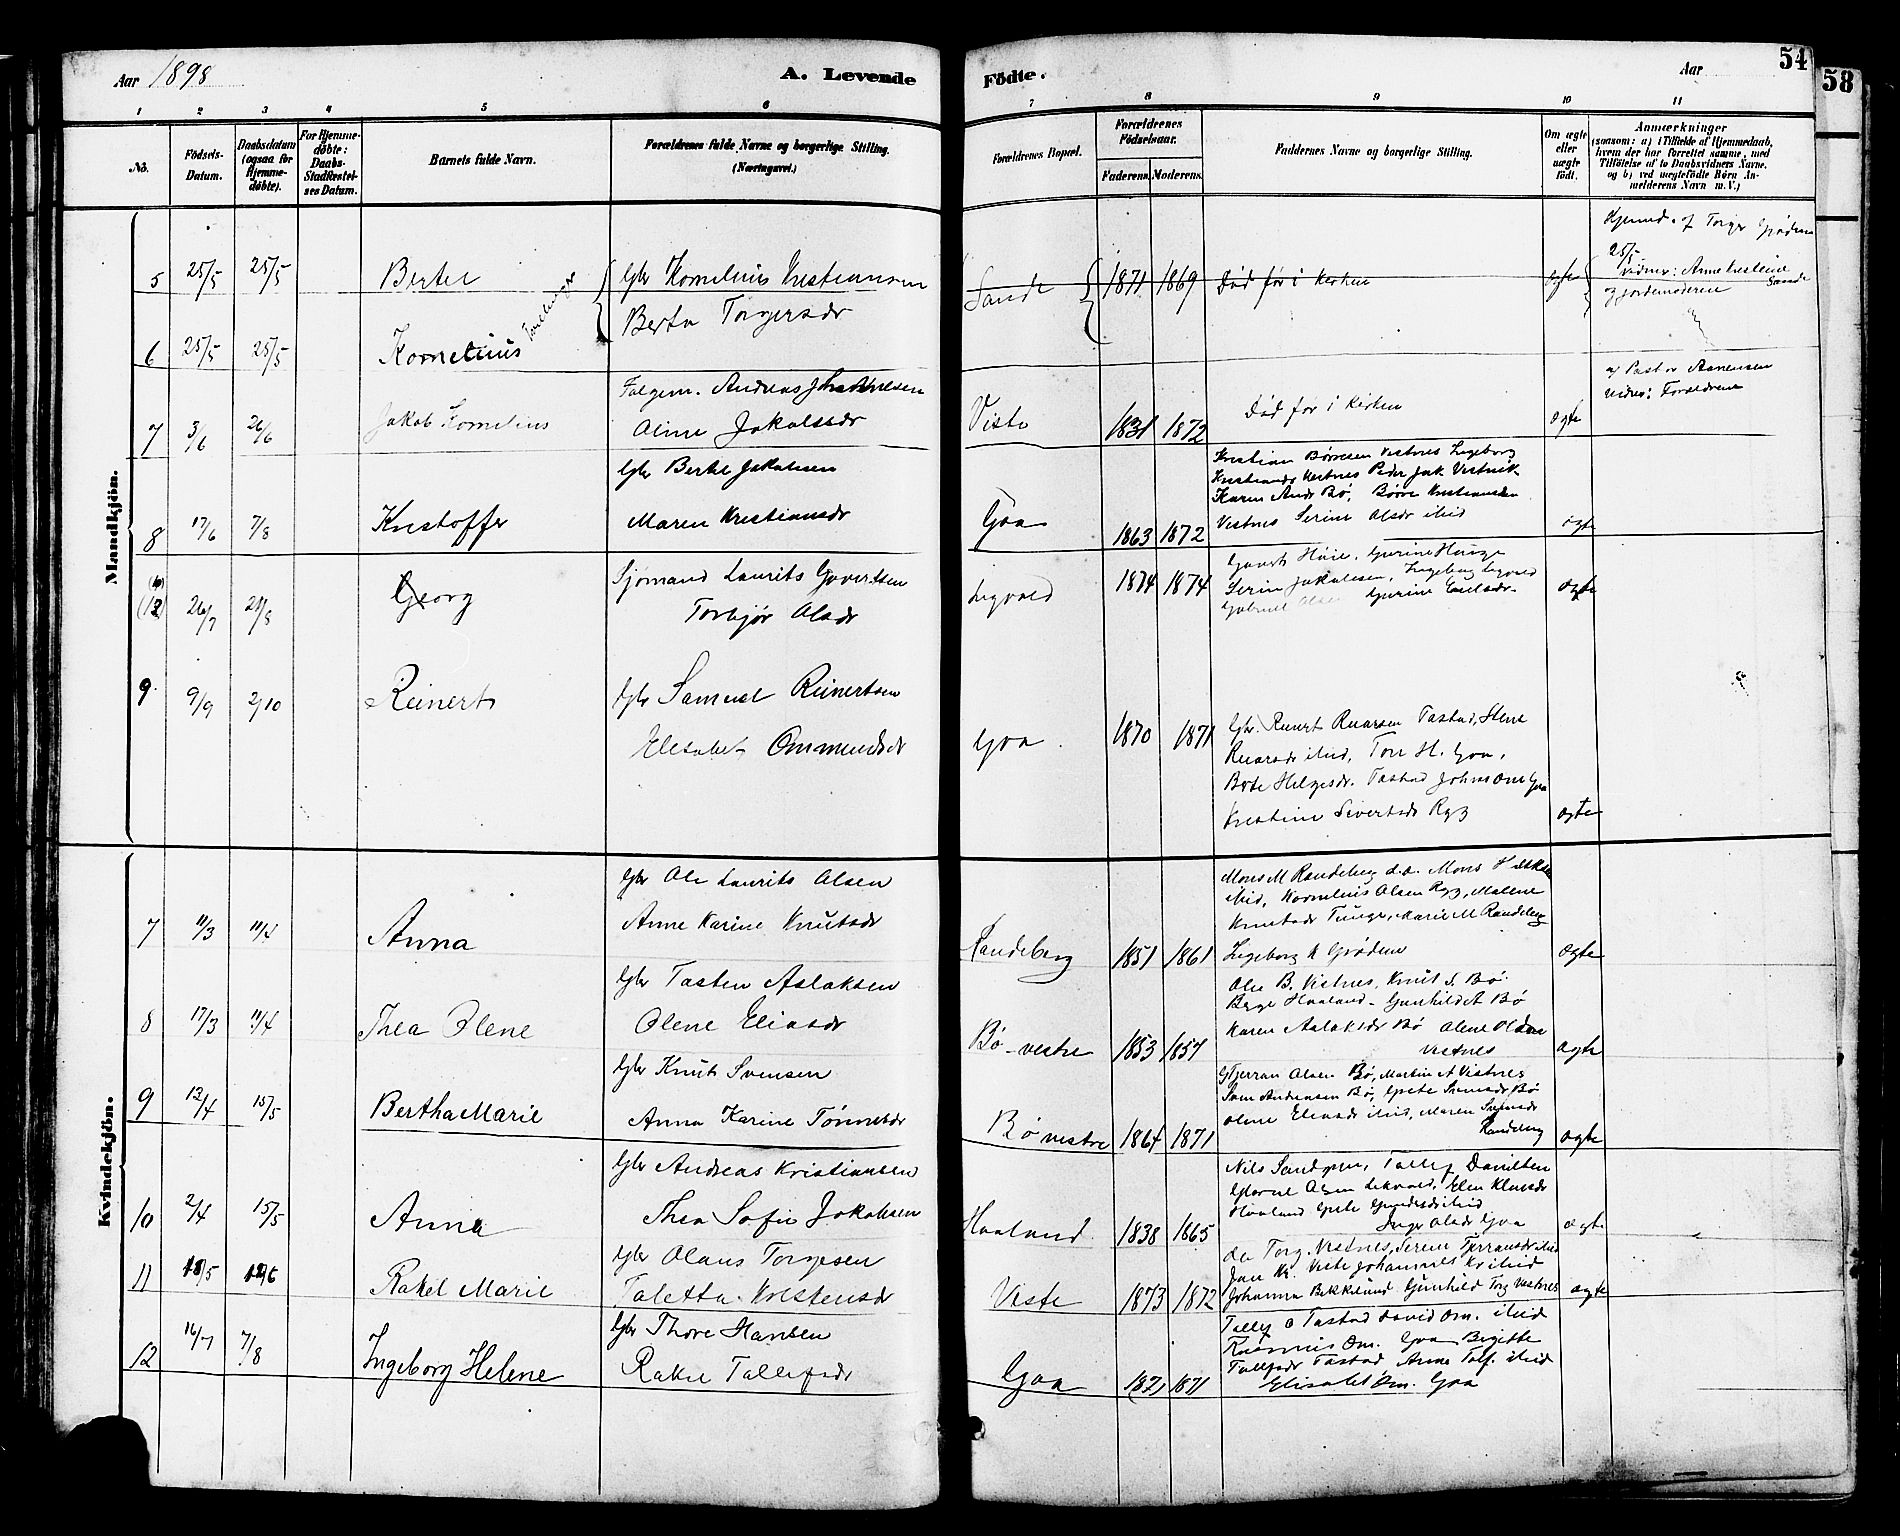 Aar 1898
A. Levende
Födte.
Aar
54
58
1 2 3 4 5 6 7 8 9 10 11
No.
Födsels-
Datum.
Daabsdatum
(ogsaa for
Hjemme-
døbte).
For Hjemme-
døbte:
Daabs-
Stadfæstel-
ses Datum.
Barnets fulde Navn.
Forældrenes fulde Navne og borgerlige Stilling.
(Næringsvei.)
Forældrenes Bopæl.
Forældrenes
Födselsaar.
Faderens. Moderens.
Faddernes Navne og borgerlige Stilling.
Om ægte
eller
uægte
födt.
Anmærkninger
(saasom: a) i Tilfælde af Hjemmedaab,
hvem der har forrettet samme, med
Tilföielse af to Daabsvidners Navne,
og b) ved uægtefödte Börn An-
melderens Navn m. V.)
Mandkjön.
5 25/5 25/5 Bertel
Gbr Kornelius Kristiansen
Berta Torgersdr
Sande 1871 1869 Død før i Kirken ægte
Hjemmed. af Torger Grødem
25/5
Vidner: Anne Kristine Sande
og Jordemoderen
Tvillinger
6 25/5 25/5 Kornelius
7 3/6 26/6 Jakob Kornelius
Andreas Johannesen
Jakobsdr
Viste 1831 1872 Død før i Kirken ægte
af Pastor Asmensen
Vidner: Forældrene
8 17/6 7/8 Kristoffer
Gbr Bertel Jakobsen
Maren Kristiansdr
Goa 1863 1872
Kristian Børresen Vestnes Ingeborg
Kristiansdr Vestnes Peder Jak. Vestnes
Karen Ands Bø, Børre Kristiansen
Vestnes Serine Olsdr ibid ægte
(12) 26/7 21/8 Georg
Sjømand Laurits Govertsen
Torbjør Olsdr
Leqvold 1874 1874
Govert Høie, Gurine Hauge
Serine Jakobsen, Ingeborg Leqvold
Gabriel Olsen Gurine ægte
9 9/9 2/10 Reinert
Gbr Samuel Reinertsen
Elisabet Ommundsdr
Goa 1870 1871
Gbr. Reinert Tastad, Stene
ibid, Tore H. Goa,
Berte Helgesdr. Tastad Johns Om Goa
Kristine Sivertsdr Ryg ægte
Kvindekjön.
7 11/3 11/4 Anna
Gbr Ole Laurits Olsen
Anne Karine Knutsdr
Randeberg 1851 1861
Mons M Randeberg d.æ. Mons H
ibid, Kornelius Olsen Ryg, Malene
Knutsdr Tunge, Marie M Randeberg
Ingeborg K Grødem ægte
8 17/3 11/4 Thea Olene
Gbr Tosten Aslaksen
Olene Eliasdr
Bø-vestre 1853 1857
Ole B. Vistnes, Knut S. Bø
Børge Haaland - Gunhild A Bø
Karen Aslaksdr Bø Olene
Vistnes ægte
9 12/4 15/5 Bertha Marie
Gbr Knut Svensen
Anna Karine Tønnesdr
Bø vestre 1864 1871
Tjerran Olsen Bø, Martin A Vistnes
Sven Andersen Bø, Grete Svensdr Bø
Olene Eliasdr ibid, Maren Svensdr
Randeberg ægte
10 2/4 15/5 Anna
Gbr Andreas Kristiansen
Thea Sofie Jakobsen
Haaland 1838 1865
Nils Sandgren, Tollef Danielsen
Olsen Elen Klausdr
Haaland Grete ibid
Inger Olsdr Goa ægte
11 18/5 12/6 Rakel Marie
Gbr Olaus Torgesen
Taletta Kristensdr
Viste 1873 1872
Torg. Vistnes, Serene Tjerransdr ibid
Jan Kr. Viste Johannes Kr ibid
Johanna Bekkelund Gunhild Torg Vistnes ægte
12 16/7 7/8 Ingeborg Helene
Gbr Thore Hansen
Rakel Tollefsdr
Goa 1871 1871
Tollef O Tastad David Om. ibid
Rasmus Om. Goa Birgitte
Tollefsdr Tastad Anna Tolf. ibid
Elisabet Om. Goa